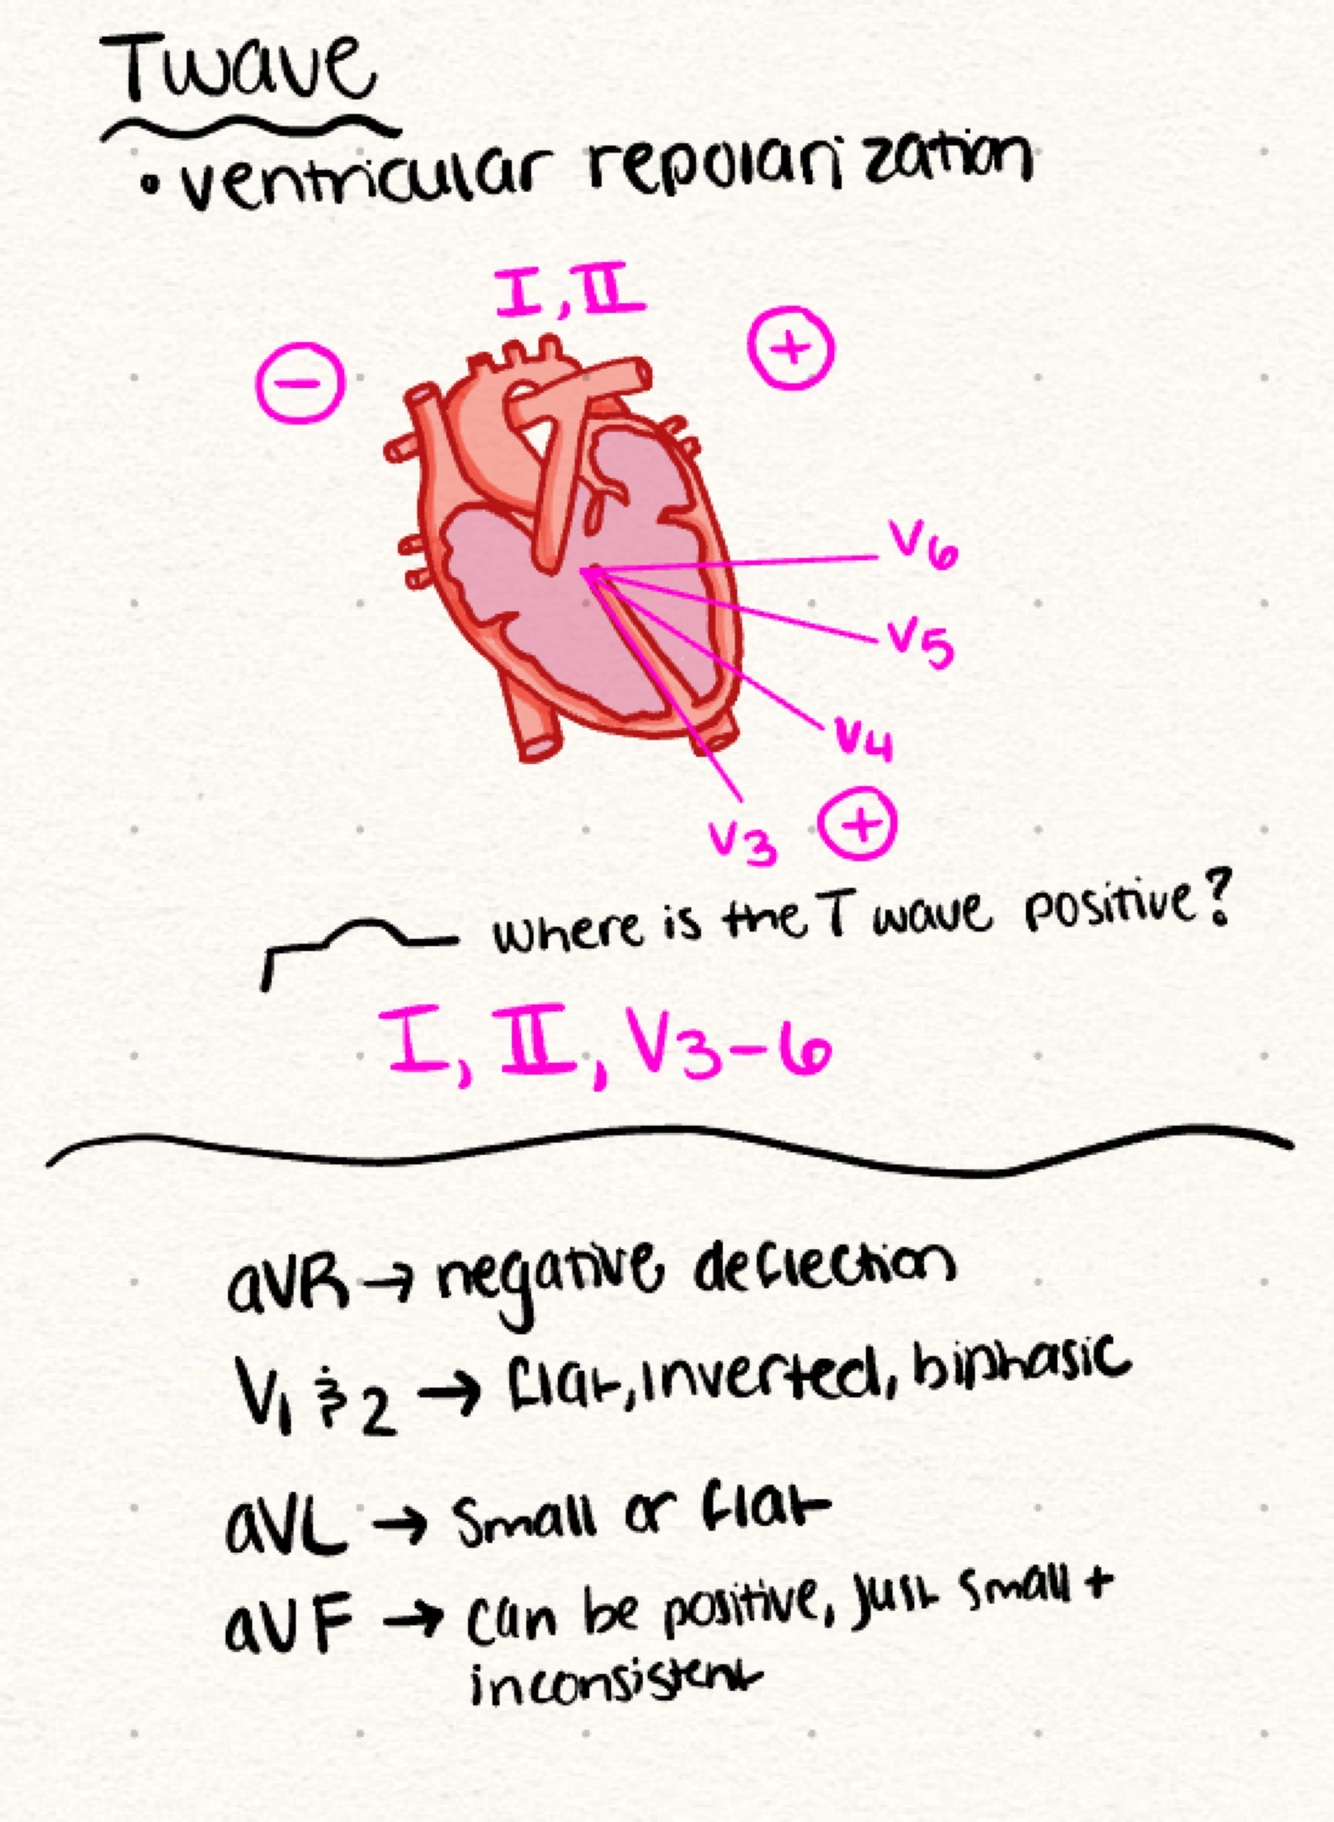 T wave
• ventricular repolarization
I, II
− +
V6
V5
V4
V3 +
where is the T wave positive?
I, II, V3-6
aVR → negative deflection
V1 & 2 → flat, inverted, biphasic
aVL → small or flat
aVF → can be positive, just small +
inconsistent